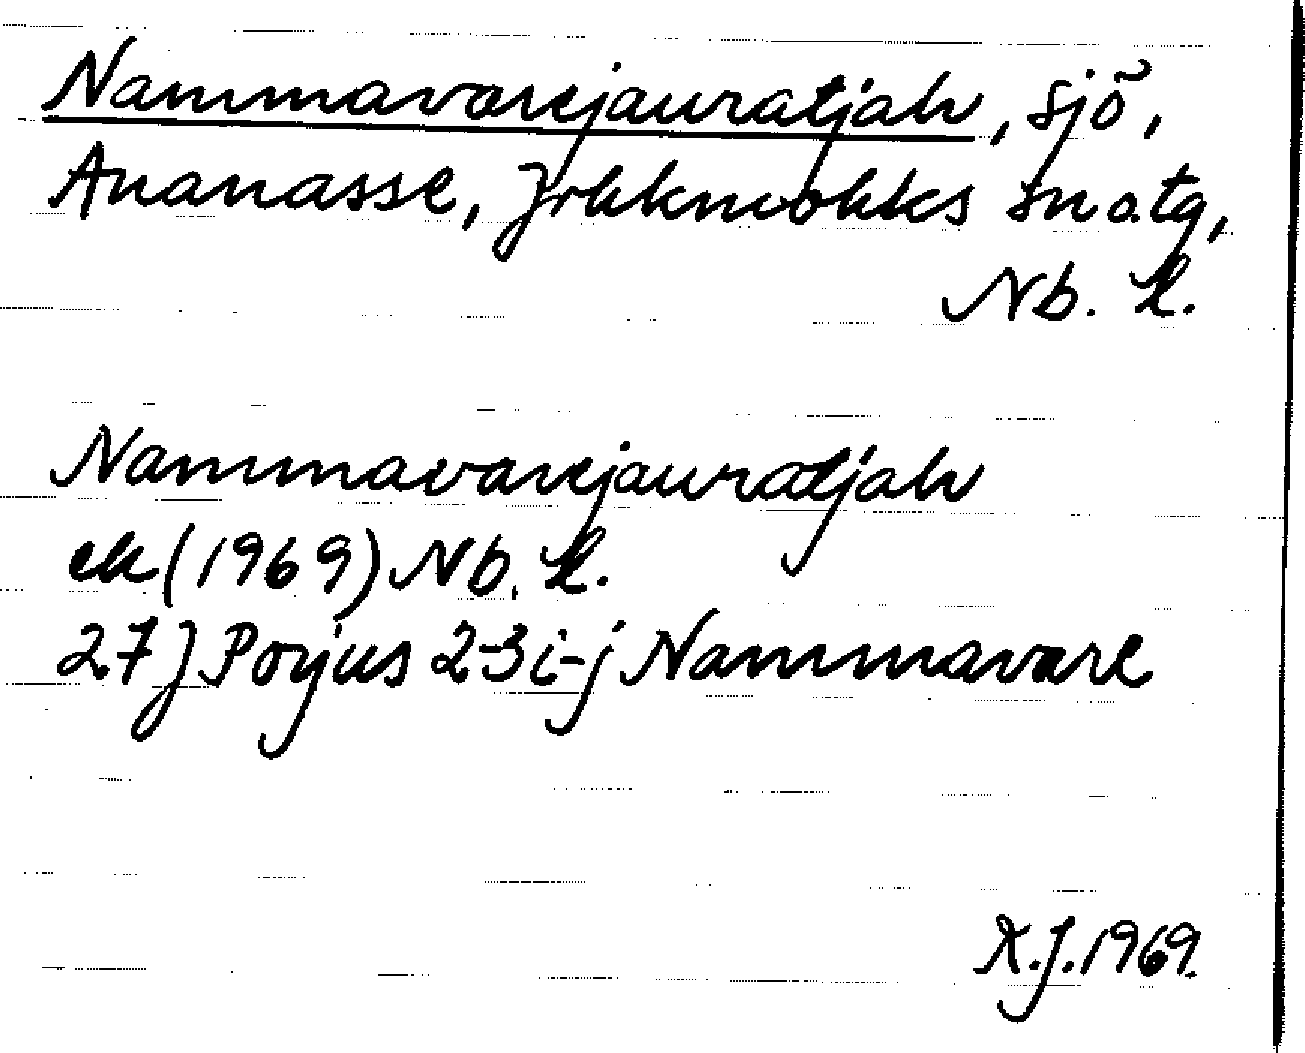 Nammavarejauratjah, sjö,
Ananasse, Jokkmokks sn o. tg,
Nb. l.
Nammavarejauratjah
ek (1969) Nb. l.
27 J Porjus 2-3 i-j Nammavare
K.J. 1969.